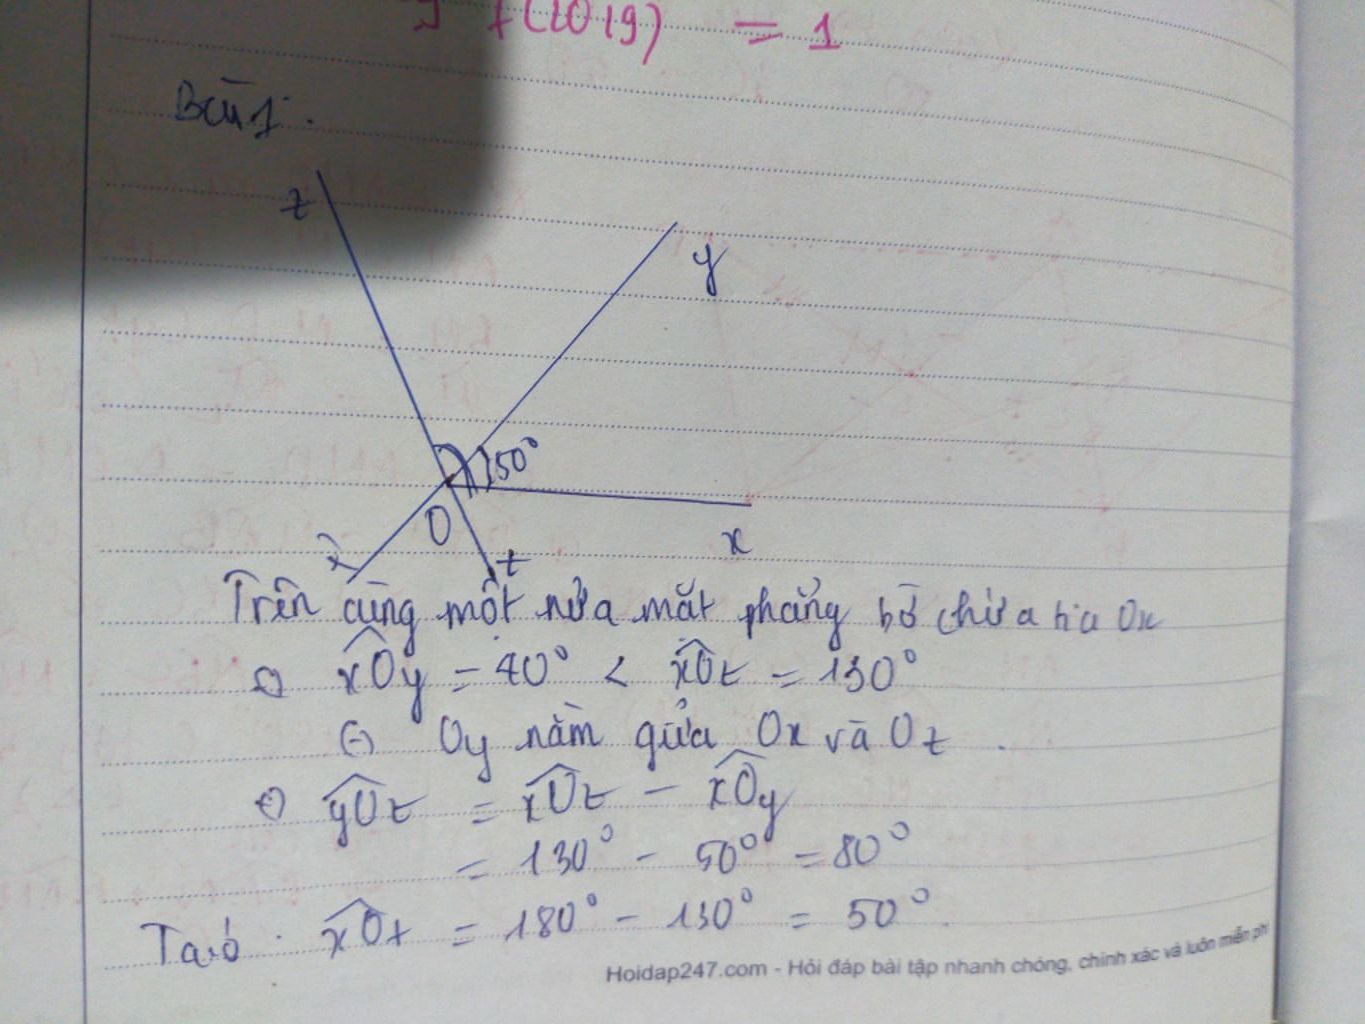 f(2019) = 1
Bài 1:
z
y
150°
O
x
t
Trên cùng một nửa mặt phẳng bờ chứa tia Ox
xOy = 40° < xOz = 130°
Oy nằm giữa Ox và Oz.
yOz = xOz - xOy
= 130° - 50° = 80°
Ta có: xOt = 180° - 130° = 50°.
Hoidap247.com - Hỏi đáp bài tập nhanh chóng, chính xác và luôn miễn phí